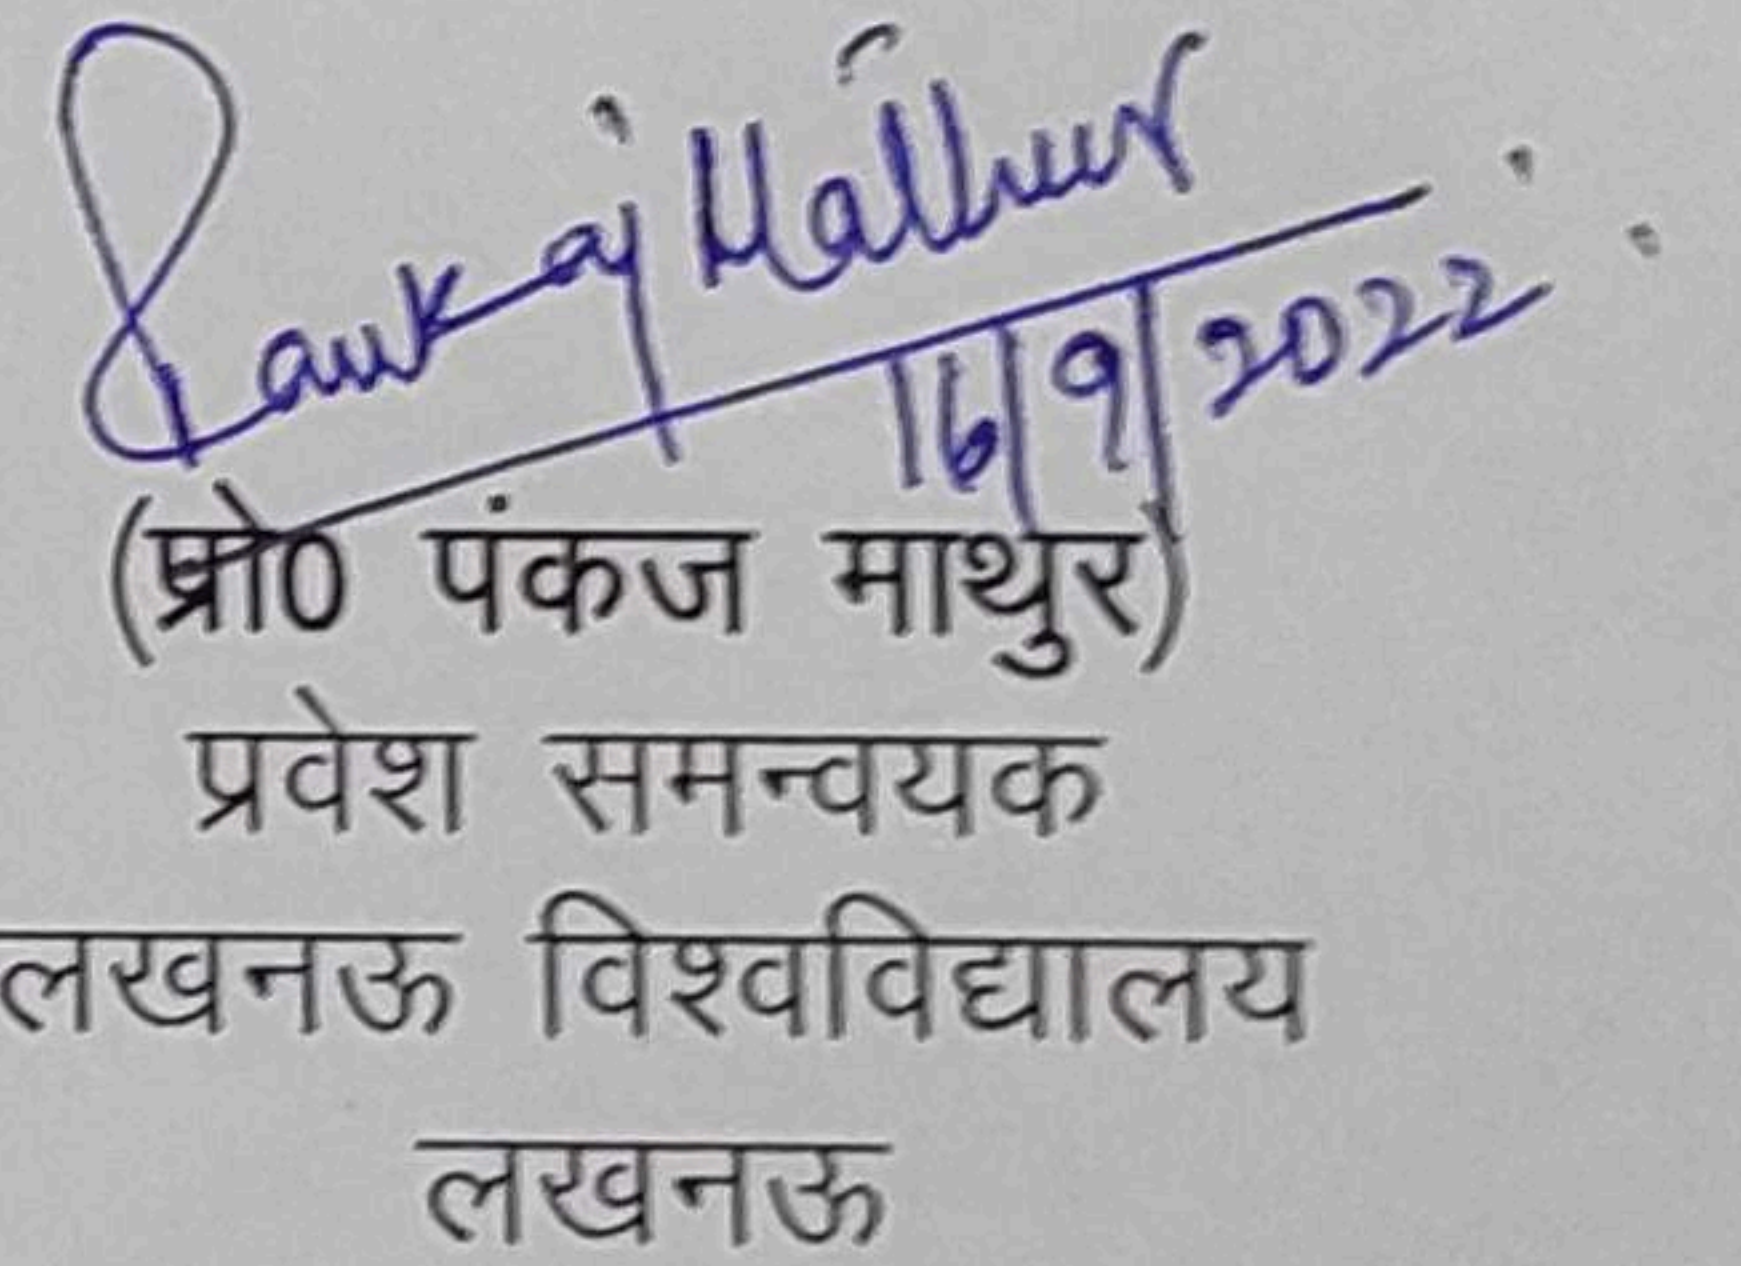 Pankaj Mathur
16/9/2022
(प्रो0 पंकज माथुर)
प्रवेश समन्वयक
लखनऊ विश्वविद्यालय
लखनऊ